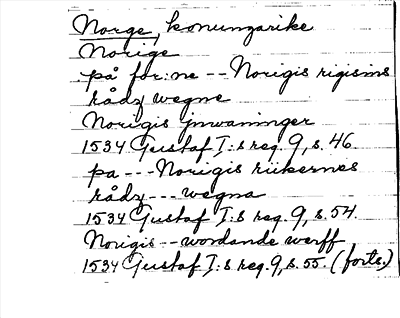 Norge, konungarike
Norige
på for:ne -- Norigis rigisins
rådz wegne
Norigis jnwaninger
1534 Gustaf I:s reg. 9, s. 46
pa --- Norigis riikernes
rådz --- wegna
1534 Gustaf I:s reg. 9, s. 54.
Norigis -- wordande werff
1534 Gustaf I:s reg. 9, s. 55. (forts.)